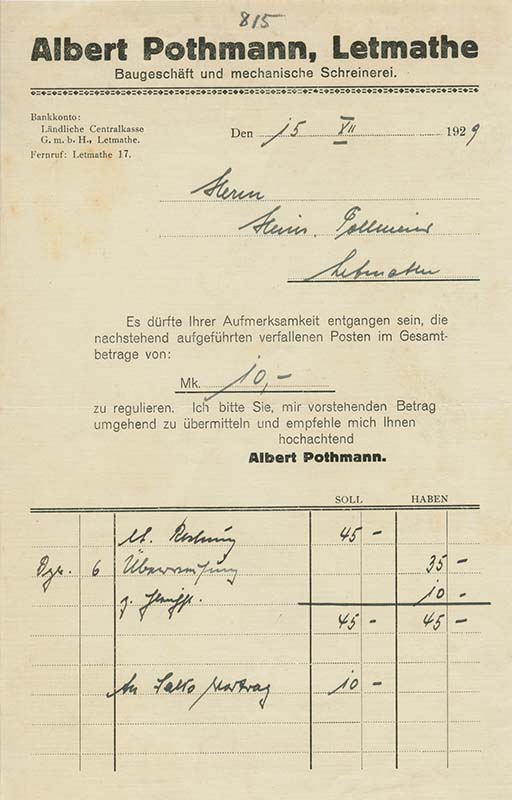 815
Albert Pothmann, Letmathe
Baugeschäft und mechanische Schreinerei.
Bankkonto:
Ländliche Centralkasse
G. m. b. H., Letmathe.
Fernruf: Letmathe 17.
Den 15 XII 1929
Herrn
Heinr. Pollmeier
Letmathe
Es dürfte Ihrer Aufmerksamkeit entgangen sein, die
nachstehend aufgeführten verfallenen Posten im Gesamt-
betrage von:
Mk. 10,-
zu regulieren. Ich bitte Sie, mir vorstehenden Betrag
umgehend zu übermitteln und empfehle mich Ihnen
hochachtend
Albert Pothmann.
SOLL HABEN
lt. Rechnung 45 -
Dez. 6 Überweisung 35 -
10 -
45 - 45 -
An Saldo Vortrag 10 -